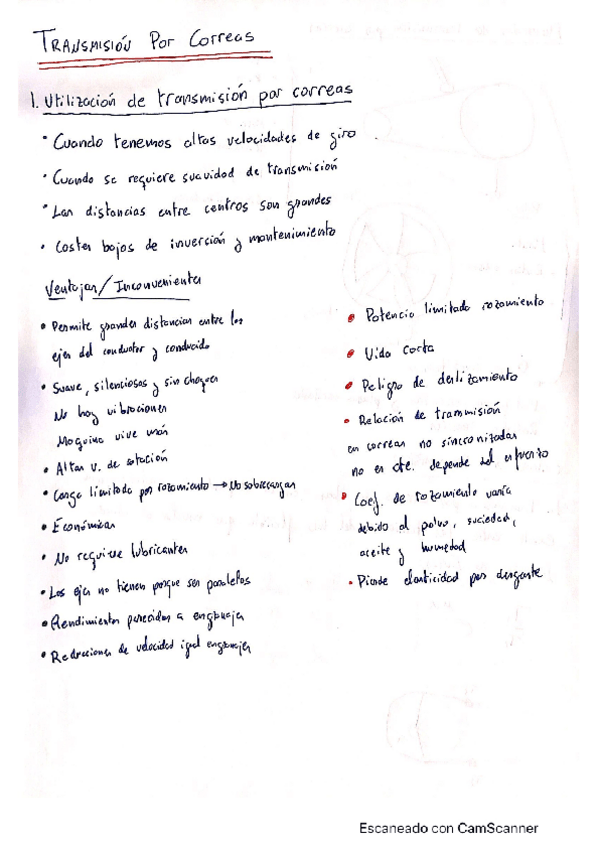 TRANSMISIÓN Por Correas
1. Utilización de transmisión por correas
• Cuando tenemos altas velocidades de giro
• Cuando se requiere suavidad de transmisión
• Las distancias entre centros son grandes
• Costes bajos de inversión y mantenimiento
Ventajas/Inconvenientes
• Permite grandes distancias entre los
ejes del conductor y conducido
• Suave, silenciosas y sin choques
No hay vibraciones
Maquina vive más
• Altas v. de rotación
• Carga limitada por rozamiento → No sobrecargan
• Económicas
• No requiere lubricantes
• Los eje no tienen porque ser paralelos
• Rendimientos parecidos a engranajes
• Redracciones de velocidad igual engranajes
• Potencia limitada rozamiento
• Vida corta
• Peligro de deslizamiento
• Relación de transmisión
en correas no sincronizadas
no es cte. depende del esfuerzo
• Coef. de rozamiento varía
debido al polvo, suciedad,
aceite y humedad
• Pierde elasticidad por desgaste
Escaneado con CamScanner